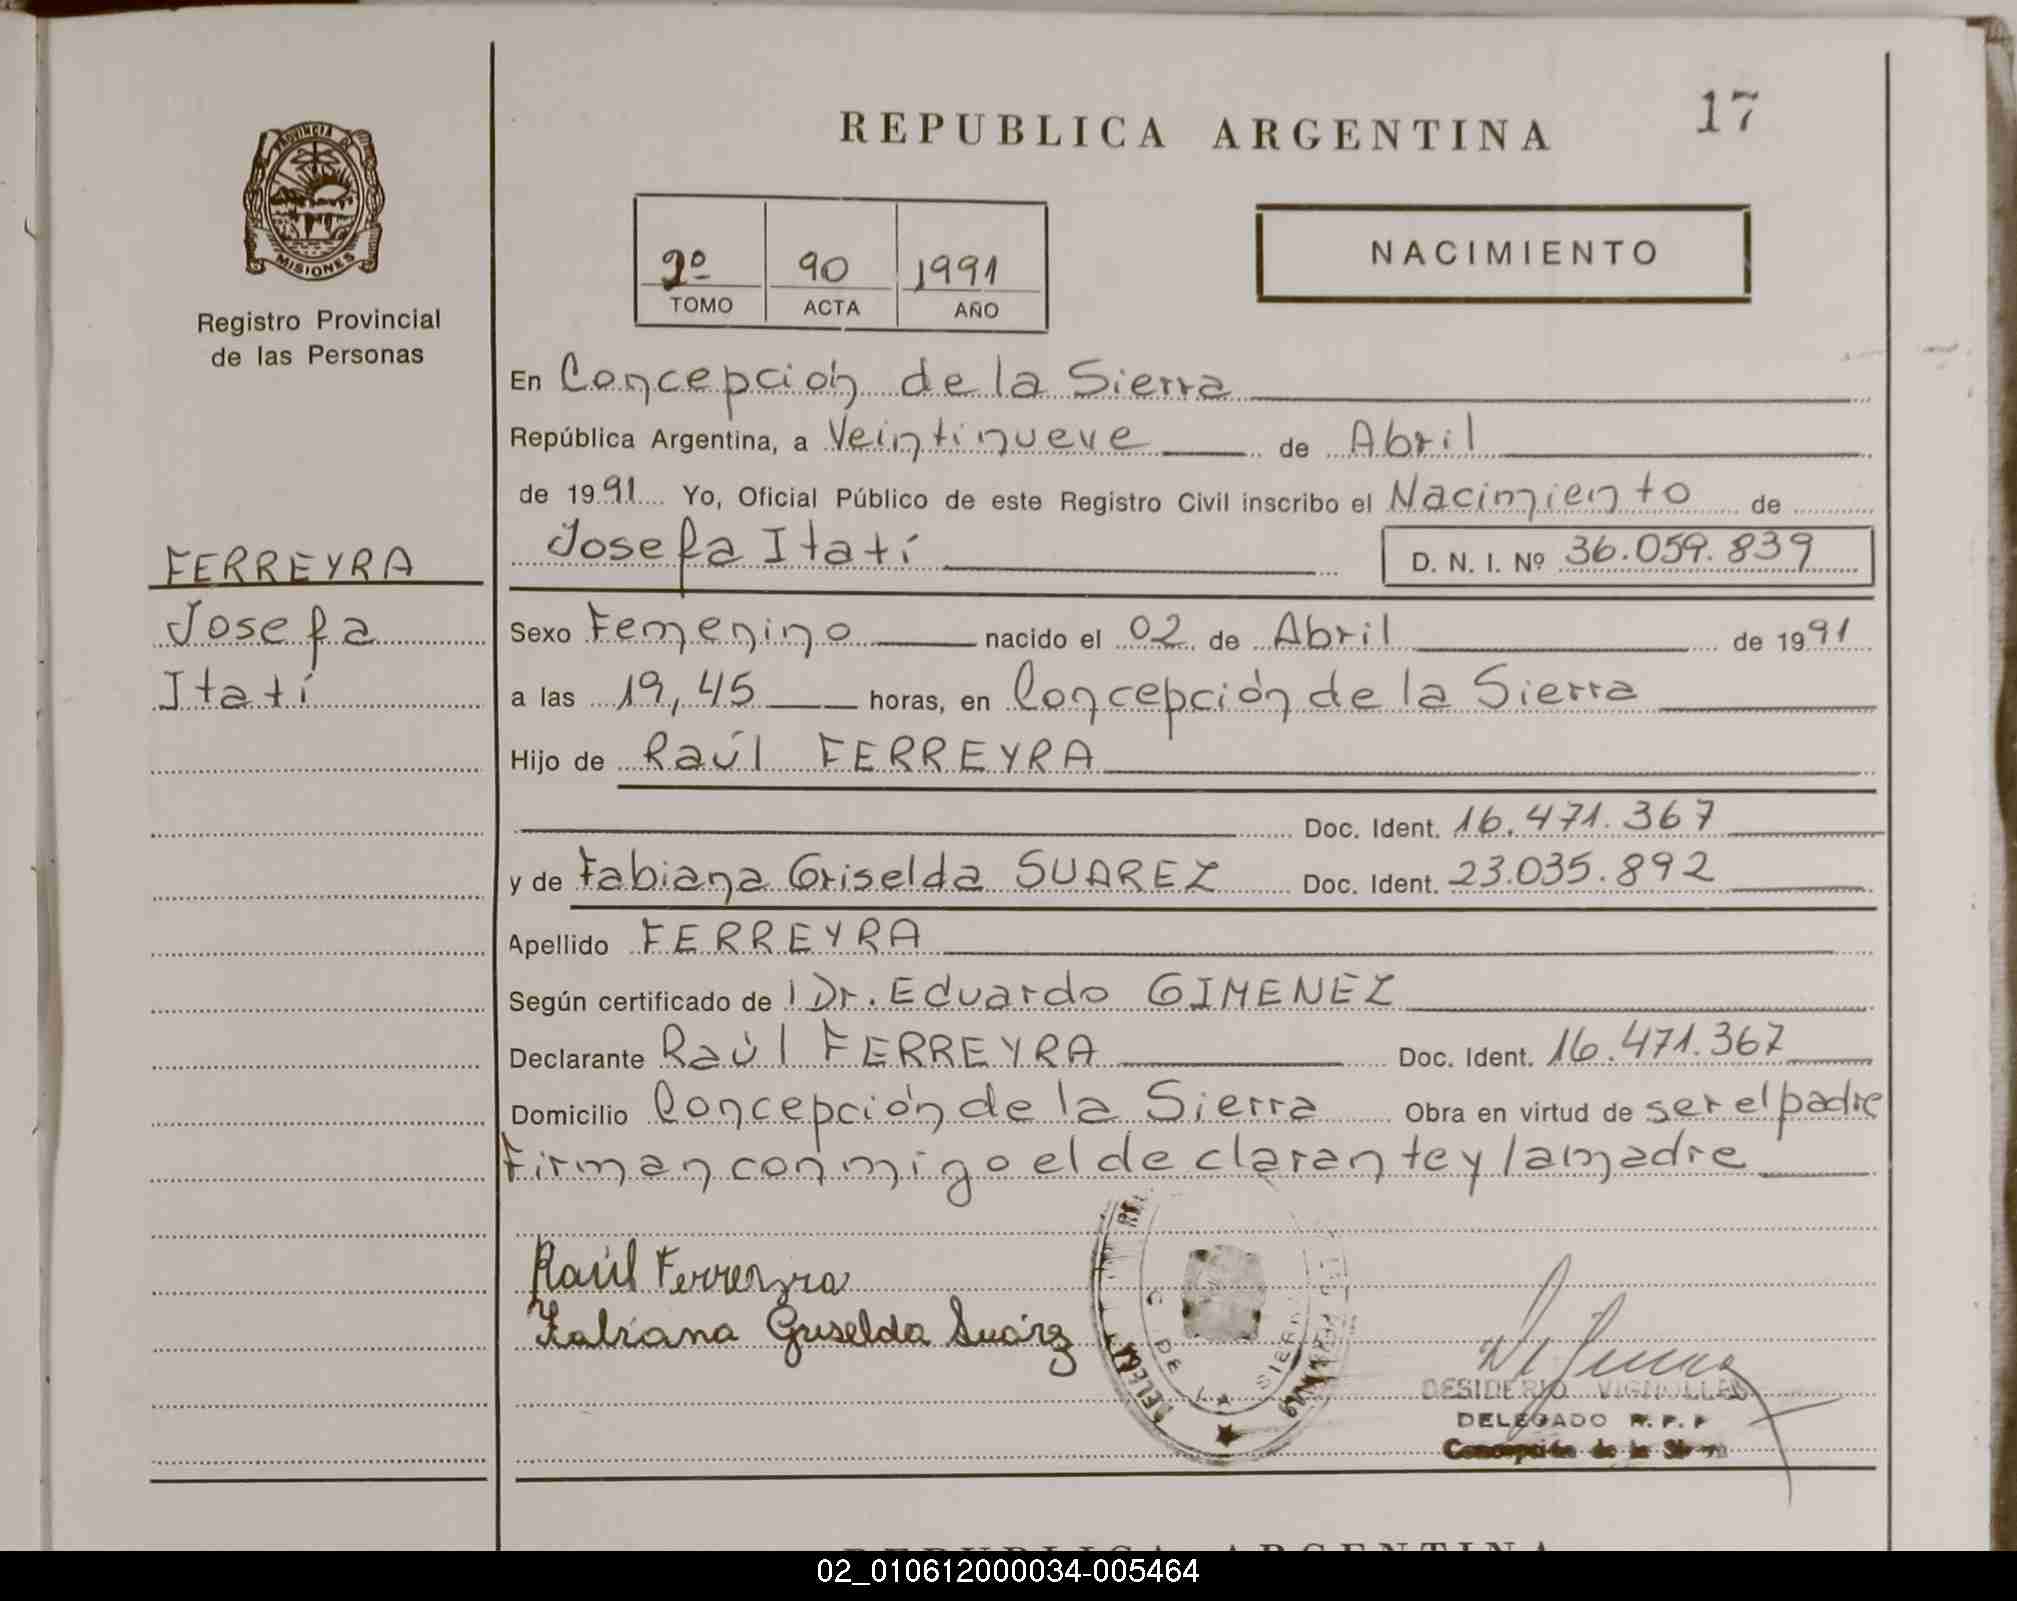 17
REPUBLICA ARGENTINA
PROVINCIA DE
MISIONES
Registro Provincial
de las Personas
2º 90 1991
TOMO ACTA AÑO
NACIMIENTO
En Concepción de la Sierra
República Argentina, a Veintinueve de Abril
de 1991 Yo, Oficial Público de este Registro Civil inscribo el Nacimiento de
Josefa Itatí D. N. I. Nº 36.059.839
FERREYRA
Josefa
Itatí
Sexo Femenino nacido el 02 de Abril de 1991
a las 19,45 horas, en Concepción de la Sierra
Hijo de Raúl FERREYRA
Doc. Ident. 16.471.367
y de Fabiana Griselda SUAREZ Doc. Ident. 23.035.892
Apellido FERREYRA
Según certificado de Dr. Eduardo GIMENEZ
Declarante Raúl FERREYRA Doc. Ident. 16.471.367
Domicilio Concepción de la Sierra Obra en virtud de ser el padre
Firman conmigo el declarante y la madre
Raúl Ferreyra
Fabiana Griselda Suárez
DESIDERIO VIGNOLLES
DELEGADO R. P. P
Concepción de la Sierra
REPUBLICA ARGENTINA
02_010612000034-005464